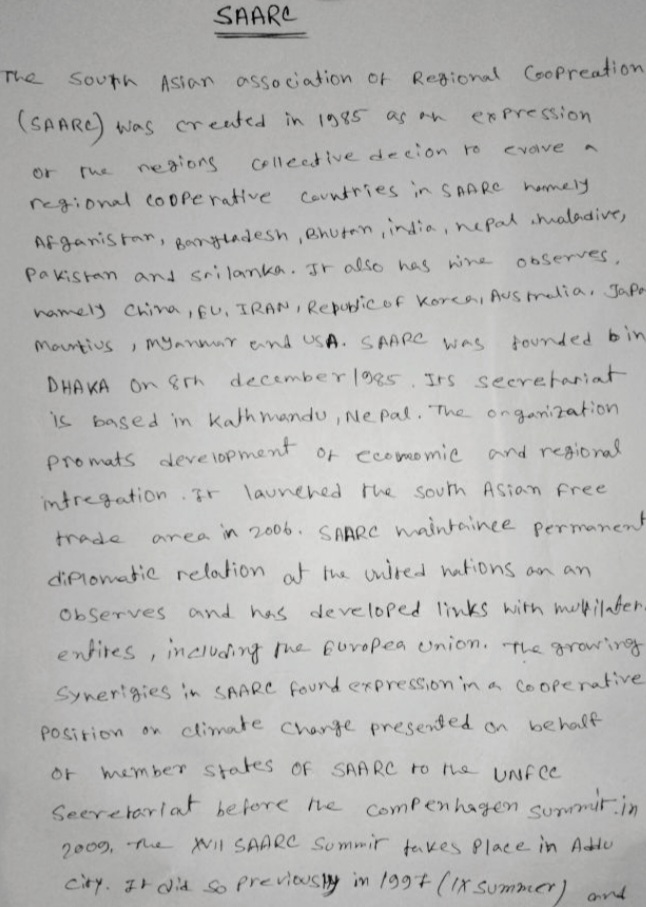 SAARC
The South Asian association of Regional Coopreation
(SAARC) was created in 1985 as an expression
of the regions collective decion to evave a
regional cooperative countries in SAARC namely
Afganistan, Bangladesh, Bhutan, india, nepal, maladive,
Pakistan and srilanka. It also has nine observes,
namely China, EU, IRAN, Republic of Korea, Australia, Japa
Mauritius, Myanmar and USA. SAARC was founded bin
DHAKA On 8th december 1985. Its secretariat
is based in Kathmandu, Nepal. The organization
promats development of ecomomic and regional
intregation. It launched the south Asian Free
trade area in 2006. SAARC maintainee permanent
diplomatic relation at the united nations an an
observes and has developed links with multilater
entires, including the Europea union. The growing
Synerigies in SAARC found expression in a cooperative
position on climate change presented on behalf
of member states OF SAARC to the UNFCC
Secretariat before the compenhagen summit.in
2009, The XVII SAARC Summit takes Place in Addu
city. It did so previously in 1997 (IX summer) and